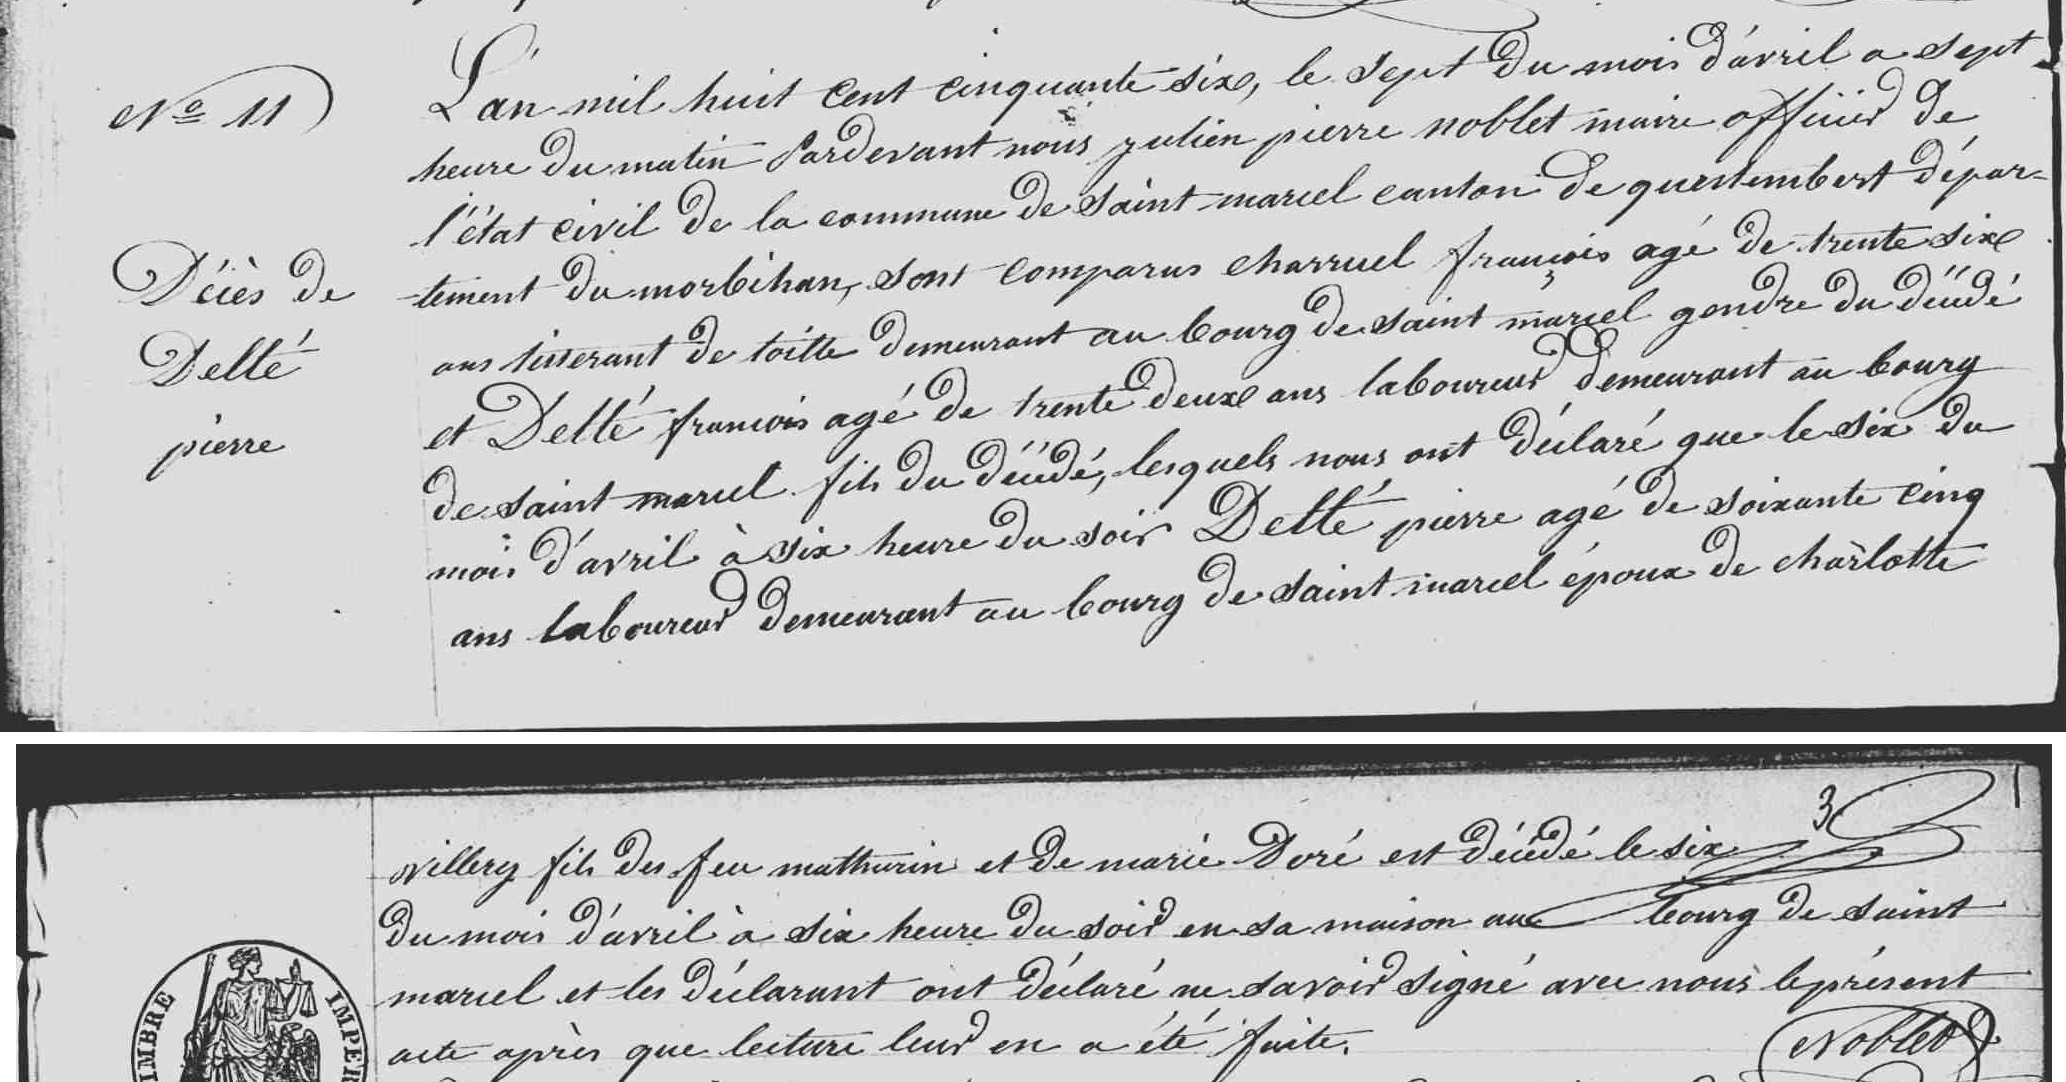 N° 11
L'an mil huit cent cinquante six, le sept du mois d'avril a sept
heure du matin Pardevant nous julien pierre noblet maire officier de
l'état civil de la commune de saint marcel canton de questembert dépar-
tement du morbihan, sont comparus charruel françois agé de trente six
ans tisserant de toille demeurant au bourg de saint marcel gendre du décédé
et Dellé francois agé de trente deux ans laboureur demeurant au bourg
de saint marcel fils du décédé, lesquels nous ont déclaré que le six du
mois d'avril à six heure du soir Dellé pierre agé de soixante cinq
ans laboureur demeurant au bourg de saint marcel époux de charlotte
Décès de
Dellé
pierre
3
villery fils des feu mathurin et de marie Doré est décédé le six
du mois d'avril à six heure du soir en sa maison au bourg de saint
marcel et les déclarant ont déclaré ne savoir signé avec nous le présent
acte après que lecture leur en a été faite.
Noblet
TIMBRE IMPER